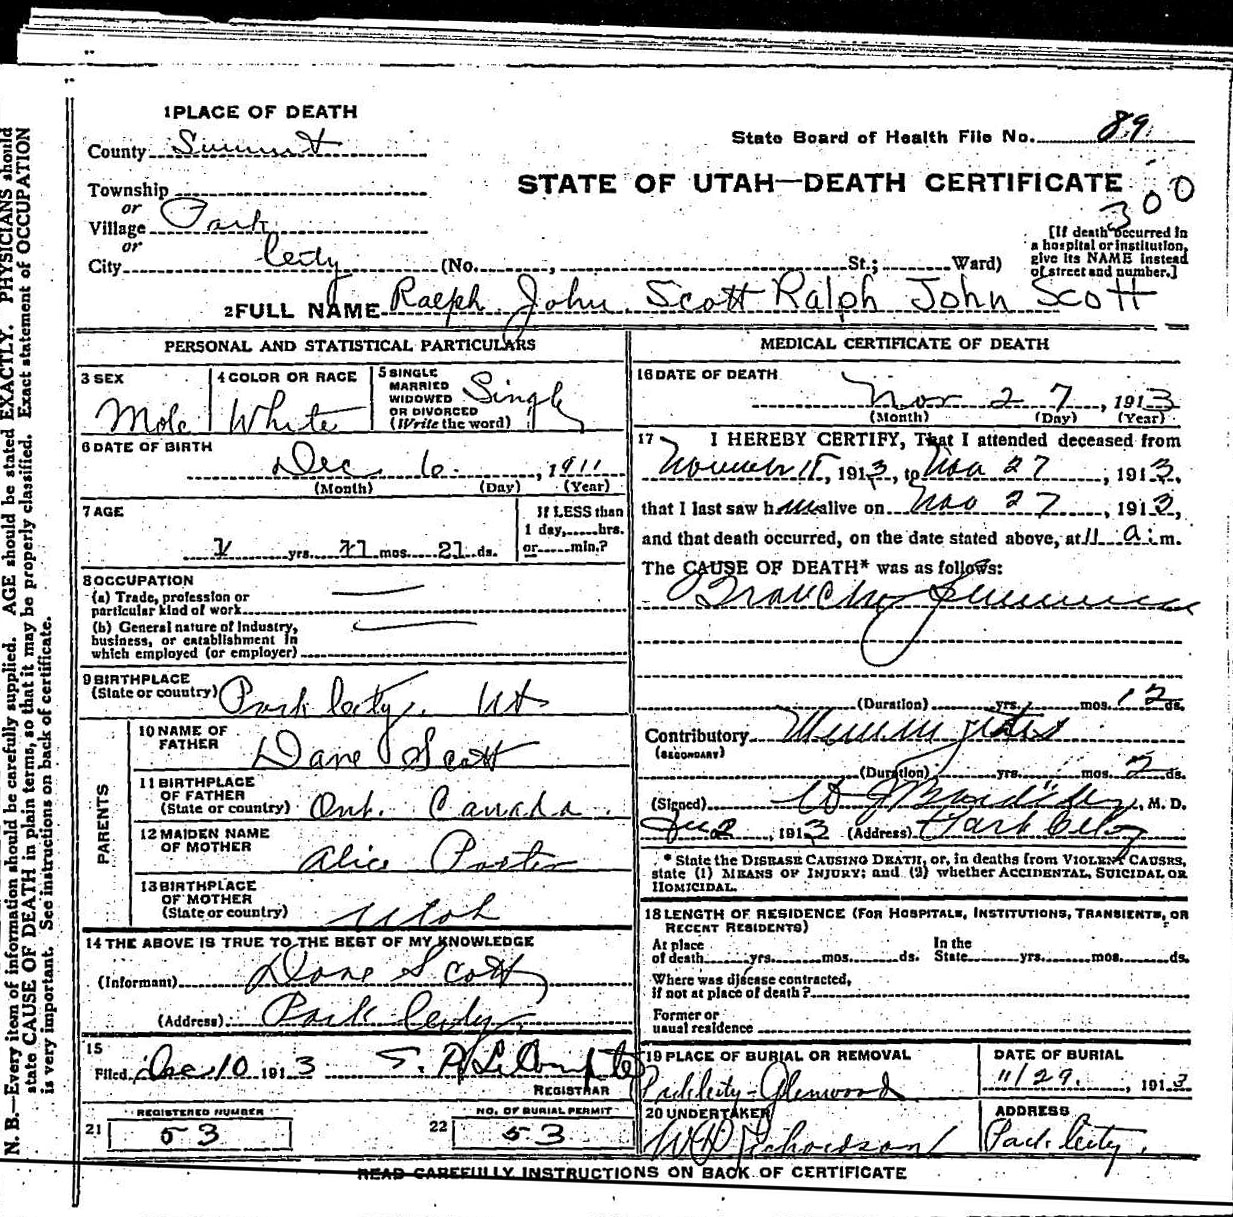 1 PLACE OF DEATH
County Summit
State Board of Health File No. 89
STATE OF UTAH—DEATH CERTIFICATE
300
Township
or
Village Park
or
City City (No. , St.; Ward)
[If death occurred in
a hospital or institution,
give its NAME instead
of street and number.]
2 FULL NAME Ralph John Scott Ralph John Scott
PERSONAL AND STATISTICAL PARTICULARS
3 SEX
Male
4 COLOR OR RACE
White
5 SINGLE
MARRIED
WIDOWED
OR DIVORCED
(Write the word)
Single
6 DATE OF BIRTH
Dec 6 , 1911
(Month) (Day) (Year)
7 AGE
1 yrs. 11 mos. 21 ds.
If LESS than
1 day, hrs.
or min.?
8 OCCUPATION
(a) Trade, profession or
particular kind of work
(b) General nature of Industry,
business, or establishment in
which employed (or employer)
9 BIRTHPLACE
(State or country) Park City, Ut
PARENTS
10 NAME OF
FATHER Dane Scott
11 BIRTHPLACE
OF FATHER
(State or country) Ont. Canada.
12 MAIDEN NAME
OF MOTHER Alice Porter
13 BIRTHPLACE
OF MOTHER
(State or country) Utah
14 THE ABOVE IS TRUE TO THE BEST OF MY KNOWLEDGE
(Informant) Dane Scott
(Address) Park City
15
Filed Dec 10 1913
REGISTRAR
REGISTERED NUMBER
21 53
NO. OF BURIAL PERMIT
22 53
MEDICAL CERTIFICATE OF DEATH
16 DATE OF DEATH
Nov 27 , 1913
(Month) (Day) (Year)
17 I HEREBY CERTIFY, That I attended deceased from
November 15, 1913, to Nov 27 , 1913,
that I last saw him alive on Nov 27 , 1913,
and that death occurred, on the date stated above, at 11 a. m.
The CAUSE OF DEATH* was as follows:
Broncho Pneumonia
(Duration) yrs. mos. 12 ds.
Contributory Meningitis
(SECONDARY)
(Duration) yrs. mos. 2 ds.
(Signed) , M. D.
, 1913 (Address) Park City
* State the DISEASE CAUSING DEATH, or, in deaths from VIOLENT CAUSES,
state (1) MEANS OF INJURY; and (2) whether ACCIDENTAL, SUICIDAL OR
HOMICIDAL.
18 LENGTH OF RESIDENCE (FOR HOSPITALS, INSTITUTIONS, TRANSIENTS, OR
RECENT RESIDENTS)
At place
of death yrs. mos. ds.
In the
State yrs. mos. ds.
Where was disease contracted,
if not at place of death?
Former or
usual residence
19 PLACE OF BURIAL OR REMOVAL
Park City - Glenwood
DATE OF BURIAL
11/29. , 1913
20 UNDERTAKER
Richardson
ADDRESS
Park City.
READ CAREFULLY INSTRUCTIONS ON BACK OF CERTIFICATE
N. B.—Every item of information should be carefully supplied. AGE should be stated EXACTLY. PHYSICIANS should
state CAUSE OF DEATH in plain terms, so that it may be properly classified. Exact statement of OCCUPATION
is very important. See instructions on back of certificate.